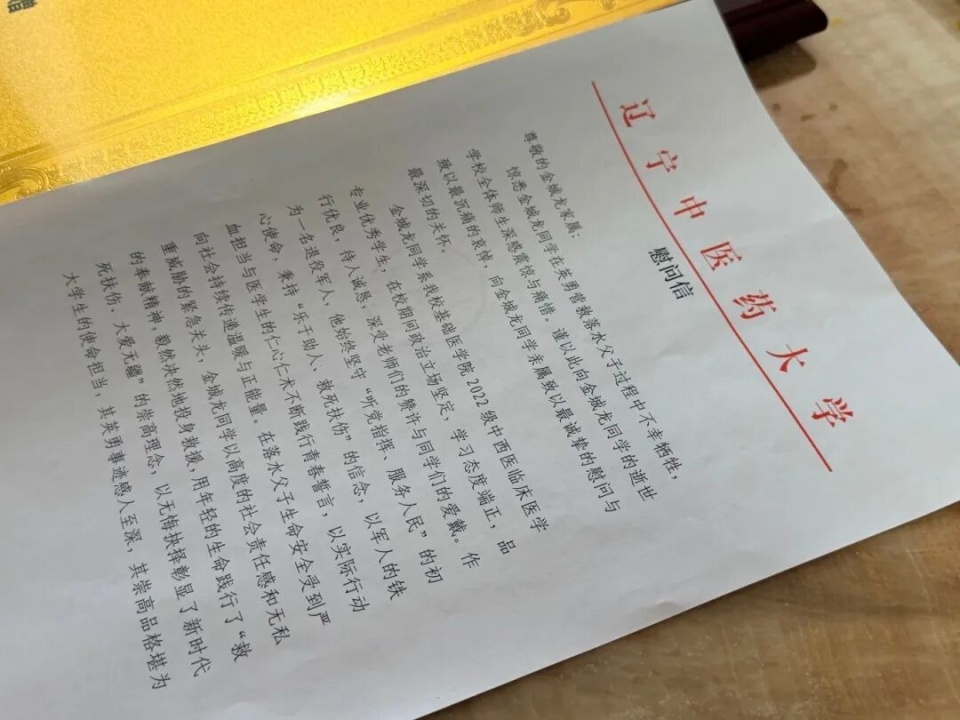 辽宁中医药大学
慰问信
尊敬的金城龙家属：
惊悉金城龙同学在英勇营救落水父子过程中不幸牺牲，
学校全体师生深感震惊与痛惜。谨以此向金城龙同学的逝世
致以最沉痛的哀悼，向金城龙同学亲属致以最诚挚的慰问与
最深切的关怀。
金城龙同学系我校基础医学院2022级中西医临床医学
专业优秀学生，在校期间政治立场坚定，学习态度端正，品
行优良，待人诚恳，深受老师们的赞许与同学们的爱戴。作
为一名退役军人，他始终坚守“听党指挥、服务人民”的初
心使命，秉持“乐于助人、救死扶伤”的信念，以军人的铁
血担当与医学生的仁心仁术不断践行青春誓言，以实际行动
向社会持续传递温暖与正能量。在落水父子生命安全受到严
重威胁的紧急关头，金城龙同学以高度的社会责任感和无私
的奉献精神，毅然决然地投身救援，用年轻的生命践行了“救
死扶伤、大爱无疆”的崇高理念，以无悔抉择彰显了新时代
大学生的使命担当，其英勇事迹感人至深，其崇高品格堪为